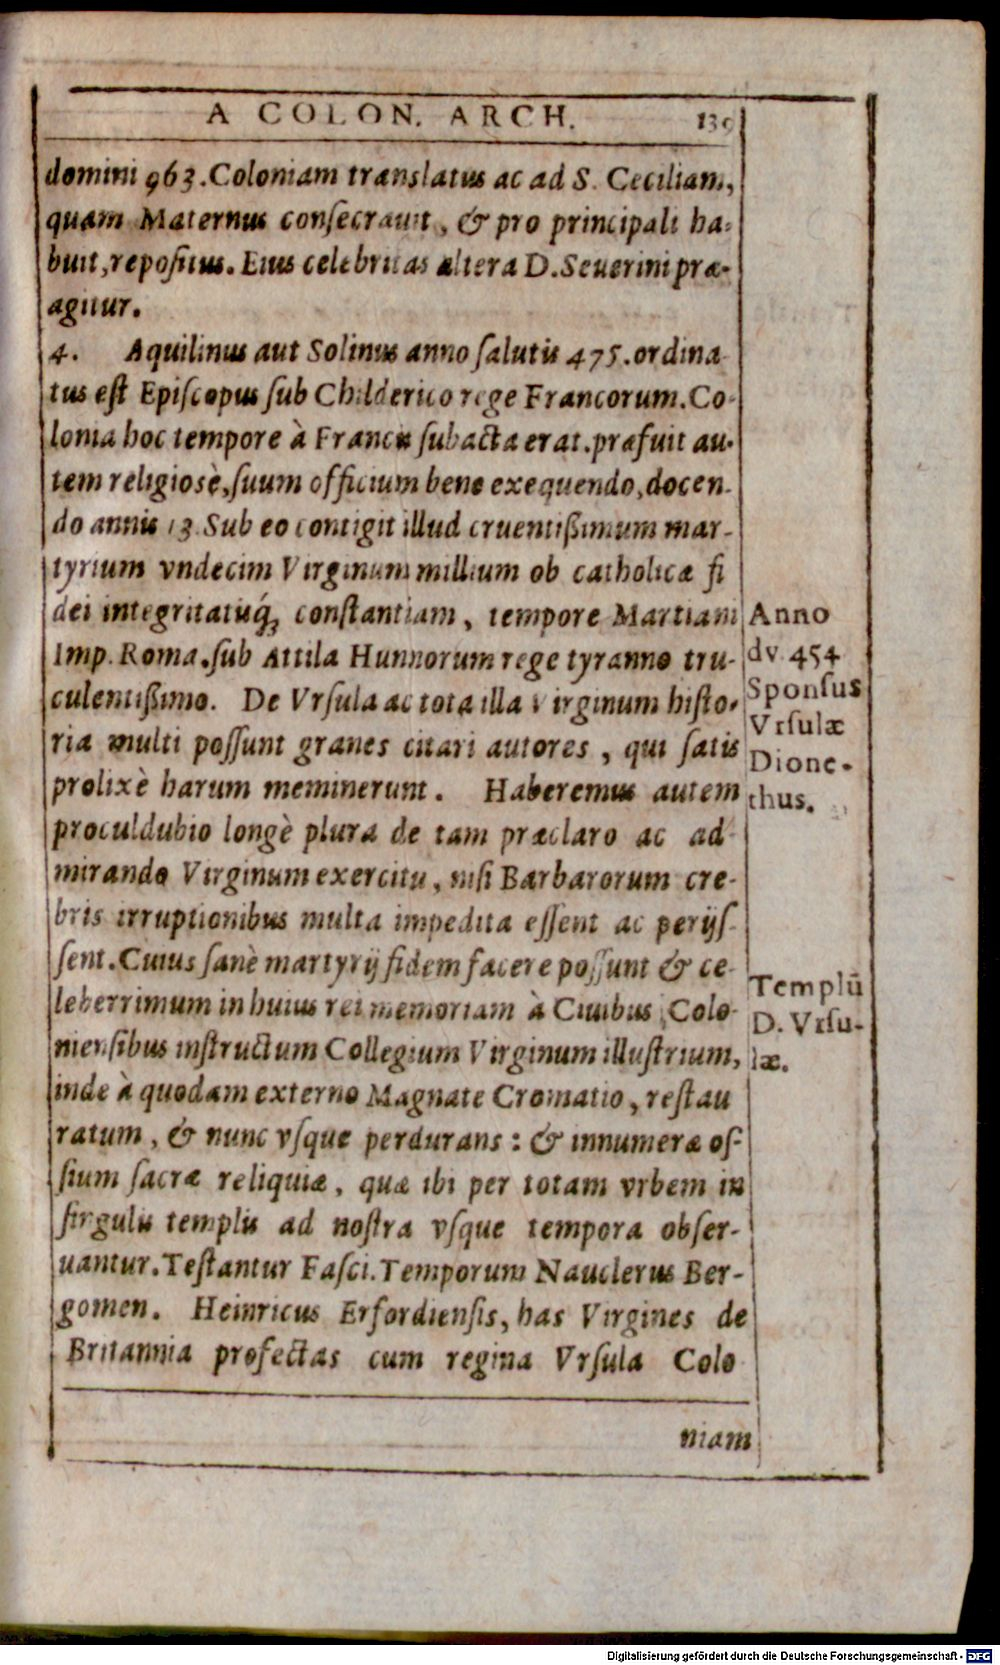 A COLON. ARCH. 139
domini 963. Coloniam translatus ac ad S. Ceciliam,
quam Maternus conſecrauit, & pro principali ha-
buit, repoſitus. Eius celebritas altera D. Seuerini præ-
agitur.
4. Aquilinus aut Solinus anno ſalutis 475. ordina-
tus eſt Epiſcopus ſub Childerico rege Francorum. Co-
lonia hoc tempore à Francis ſubacta erat. præfuit au-
tem religiosè, ſuum officium bene exequendo, docen-
do annis 13. Sub eo contigit illud cruentißimum mar-
tyrium vndecim Virginum millium ob catholicæ fi
dei integritatiq́; conſtantiam, tempore Martiani
Imp. Roma. ſub Attila Hunnorum rege tyranno tru-
culentißimo. De Vrſula ac tota illa Virginum hiſto-
ria multi poſſunt graues citari autores, qui ſatis
prolixè harum meminerunt. Haberemus autem
proculdubio longè plura de tam præclaro ac ad-
mirando Virginum exercitu, niſi Barbarorum cre-
bris irruptionibus multa impedita eſſent ac perijſ-
ſent. Cuius ſanè martyrij fidem facere poſſunt & ce-
leberrimum in huius rei memoriam à Ciuibus Colo-
nienſibus inſtructum Collegium Virginum illuſtrium,
inde à quodam externo Magnate Cromatio, reſtau
ratum, & nunc vſque perdurans: & innumeræ oſ-
ſium ſacræ reliquiæ, quæ ibi per totam vrbem in
ſingulis templis ad noſtra vſque tempora obſer-
uantur. Teſtantur Faſci. Temporum Nauclerus Ber-
gomen. Heinricus Erfordienſis, has Virgines de
Britannia profectas cum regina Vrſula Colo
niam
Anno
dv. 454
Sponſus
Vrſulæ
Dione-
thus.
Templū
D. Vrſu-
læ.
Digitalisierung gefördert durch die Deutsche Forschungsgemeinschaft - DFG